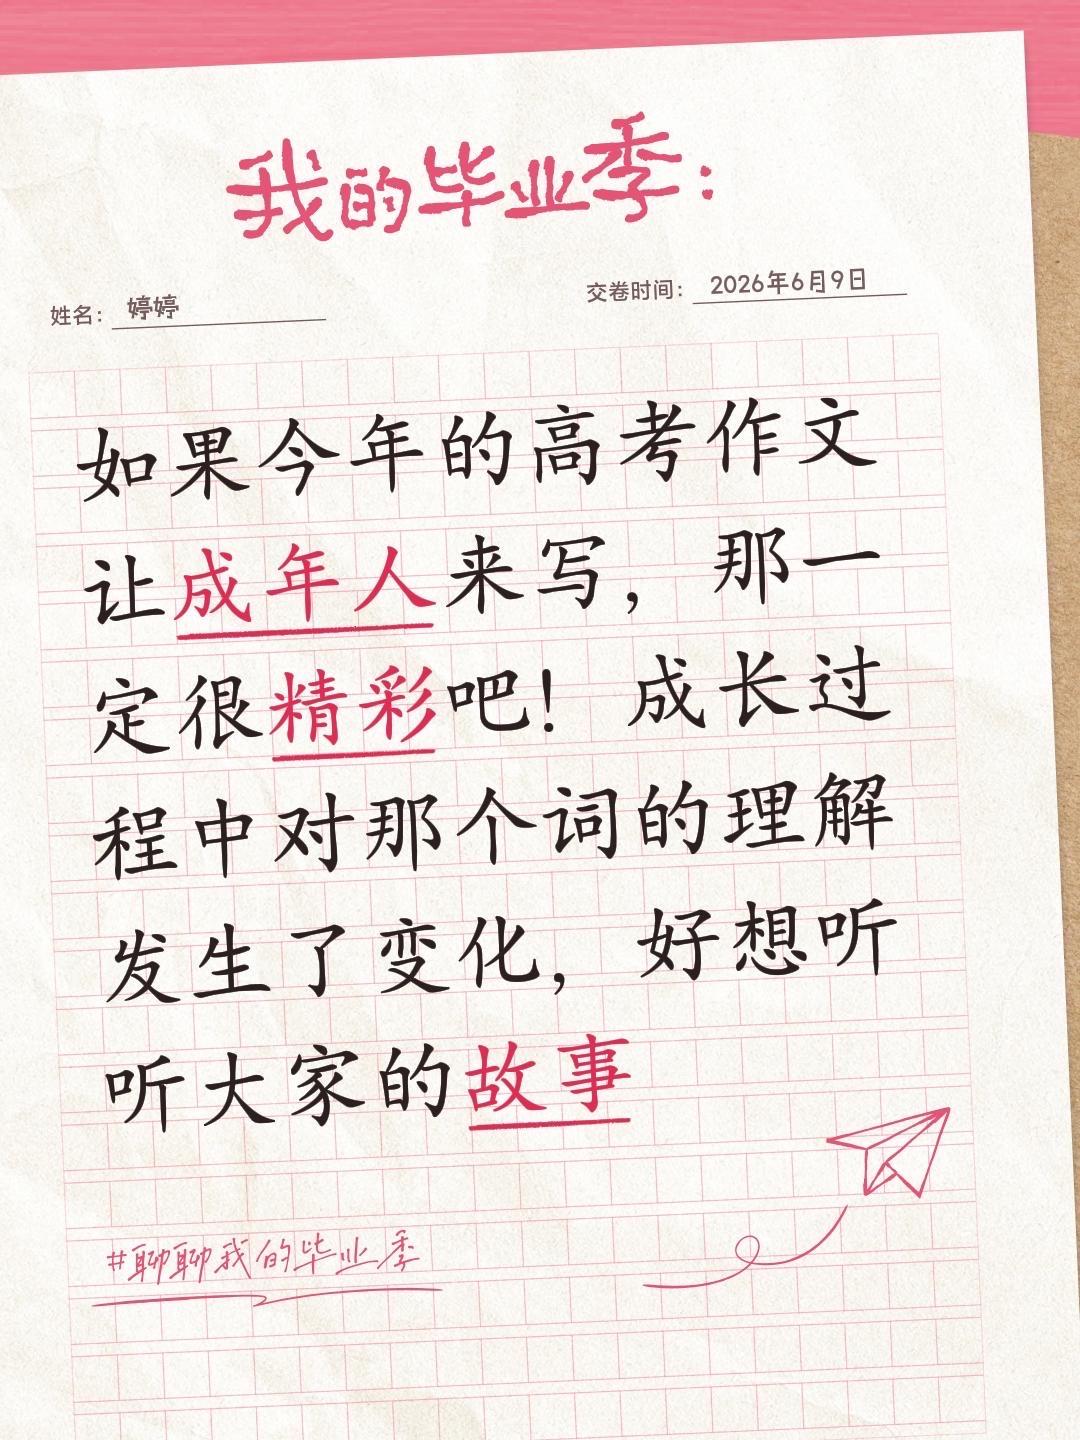 我的毕业季：
姓名：婷婷
交卷时间：2026年6月9日
如果今年的高考作文
让成年人来写，那一
定很精彩吧！成长过
程中对那个词的理解
发生了变化，好想听
听大家的故事
#聊聊我的毕业季